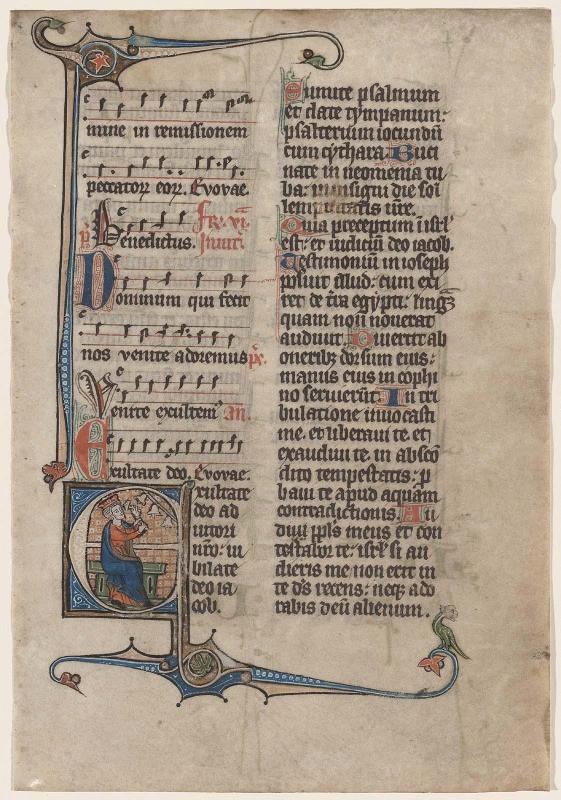 mine in remissionem
peccatoꝝ eoꝝ. Evovae.
Benedictus.
Dominum qui fecit
nos venite adoremus
Venite exultem
Exultate deo. Evovae.
Exultate
deo ad
iutori
nr̄o: iu
bilate
deo ia
cob.
Sumite psalmum
et date tympanum:
psalterium iocundū
cum cythara. Buci
nate in neomenia tu
ba: in insigni die sol
lempnitatis vr̄e.
Quia preceptum ī isrl̓
est: et iudicium deo iacob.
Testimonium in ioseph
posuit illud: cum exi
ret de t̄ra egypti: lingᷓ
quam non noverat
audivit. Divertit ab
oneribꝫ dorsum eius:
manus eius in cophi
no servierūt. In tri
bulatione invocasti
me. et liberavi te. et
exaudivi te. in absco
dito tempestatis: p
bavi te apud aquam
contradictionis. Au
di pp̄ls meus et con
testabor te: isrl̓ si au
dieris me non erit in
te d's recens: neqꝫ ado
rabis deū alienum.